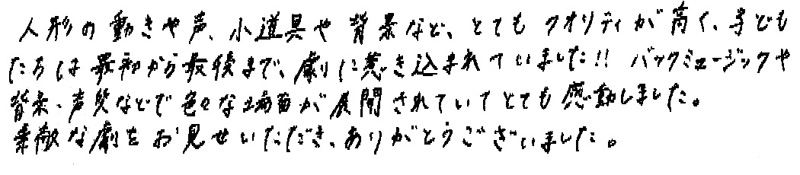 人形の動きや声、小道具や背景など、とてもクオリティが高く、子ども
たちは最初から最後まで、劇に惹き込まれていました!! バックミュージックや
背景、声質などで色々な場面が展開されていてとても感動しました。
素敵な劇をお見せいただき、ありがとうございました。